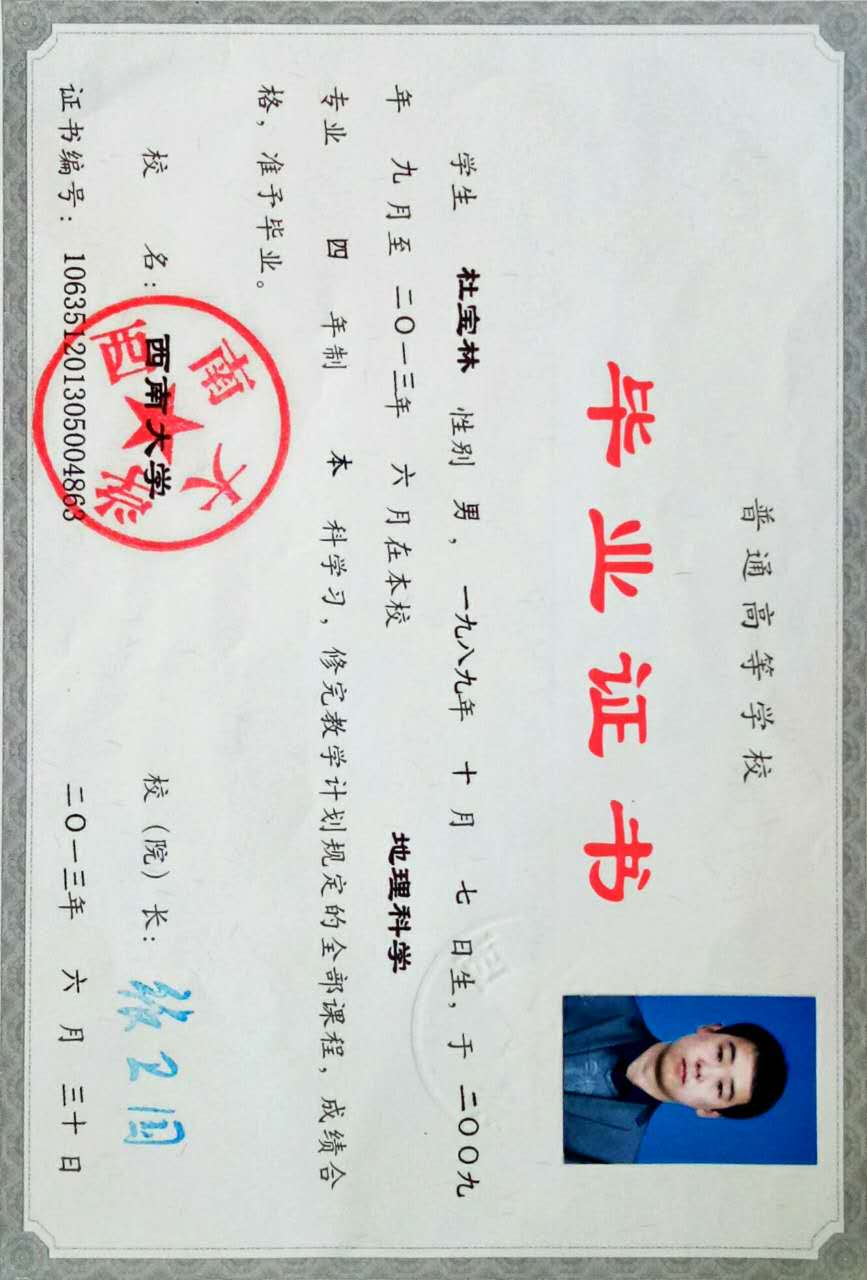 普通高等学校
毕业证书
学生 杜宝林 性别 男， 一九八九年 十月 七 日生，于 二〇〇九
年 九月至 二〇一三年 六月在本校 地理科学
专业 四 年制 本 科学习，修完教学计划规定的全部课程，成绩合
格，准予毕业。
校 名：西南大学 校（院）长：张卫国
证书编号：106351201305004863 二〇一三年 六 月 三十日
西南大学